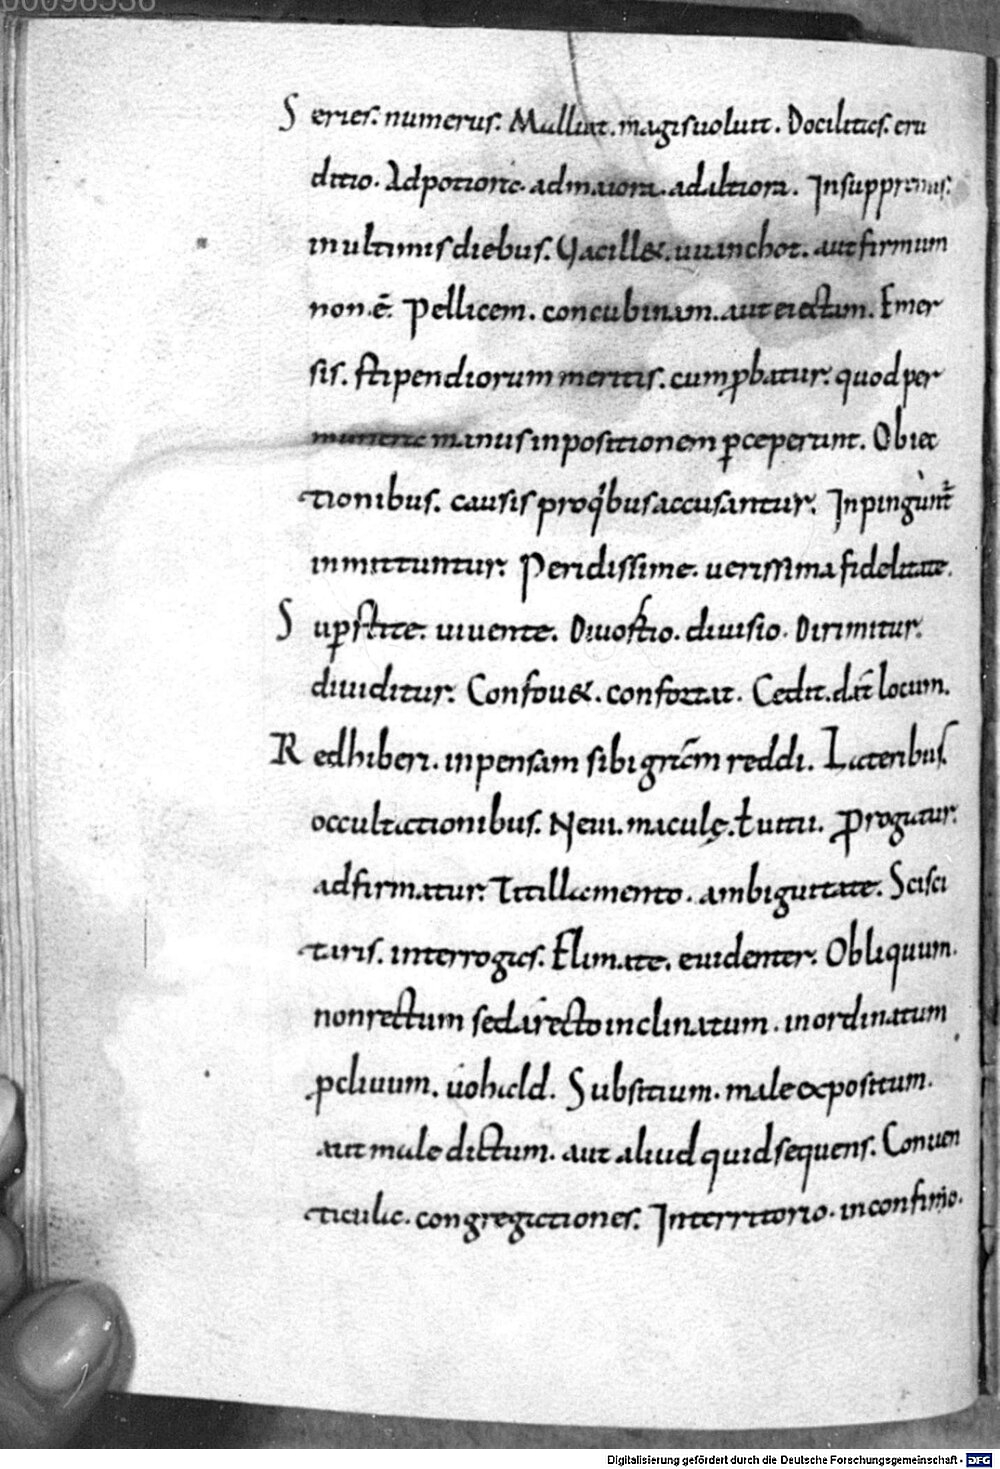 Series. numerus. Malluit. magisuoluit. Docilitas. eru
ditio. Adpotiora. admaiora. adaltiora. Insuppremis.
inultimisdiebus. Uacill&. uuanchot. autfirmum
non.ē. Pellicem. concubinam. aut eiectam. Emer
sis. stipendiorum meritis. cumꝓbatur. quod per
munera manus inpositionem ꝑceperunt. Obiec
tionibus. causis proqⁱbus accusantur. Inpingunt̄
inmittuntur. Peridissime. uerissima fidelitate.
Suꝑstite. uiuente. Diuostio. diuisio. Dirimitur.
diuiditur. Confou&. confortat. Cedit. dat̄ locum.
Redhiberi. inpensam sibi grām reddi. Lateribus.
occultationibus. Neui. maculę. ł uitii. Prorogatur.
adfirmatur. Titillamento. ambiguitate. Scisci
taris. interrogas. Elimate. euidenter. Obliquum.
nonrectum sed a recto inclinatum. inordinatum
ꝓcliuum. uohald. Substium. male expositum.
aut male dictum. aut aliud quid sequens. Conuen
ticula. congregationes. Interritorio. inconfinio.
Digitalisierung gefördert durch die Deutsche Forschungsgemeinschaft - DFG